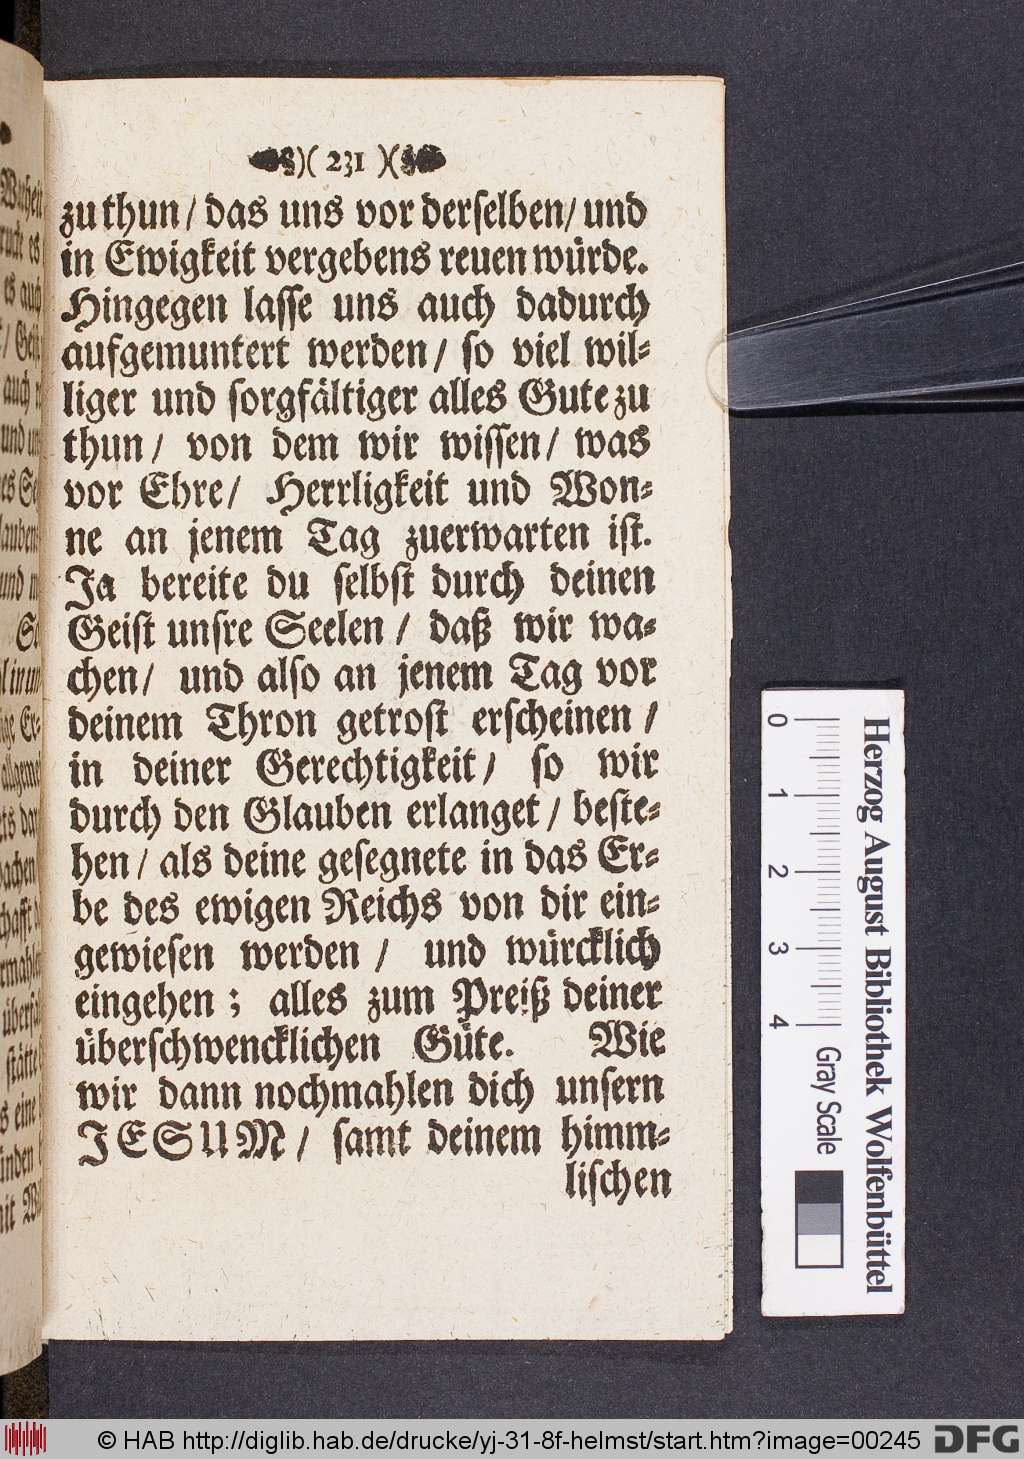 )( 231 )(
zu thun / das uns vor derselben / und
in Ewigkeit vergebens reuen würde.
Hingegen lasse uns auch dadurch
aufgemuntert werden / so viel wil⸗
liger und sorgfältiger alles Gute zu
thun / von dem wir wissen / was
vor Ehre / Herrligkeit und Won⸗
ne an jenem Tag zuerwarten ist.
Ja bereite du selbst durch deinen
Geist unsre Seelen / daß wir wa⸗
chen / und also an jenem Tag vor
deinem Thron getrost erscheinen /
in deiner Gerechtigkeit / so wir
durch den Glauben erlanget / beste⸗
hen / als deine gesegnete in das Er⸗
be des ewigen Reichs von dir ein⸗
gewiesen werden / und würcklich
eingehen ; alles zum Preiß deiner
überschwencklichen Güte. Wie
wir dann nochmahlen dich unsern
JESUM / samt deinem himm⸗
lischen
Herzog August Bibliothek Wolfenbüttel
0 1 2 3 4 Gray Scale
© HAB http://diglib.hab.de/drucke/yj-31-8f-helmst/start.htm?image=00245 DFG